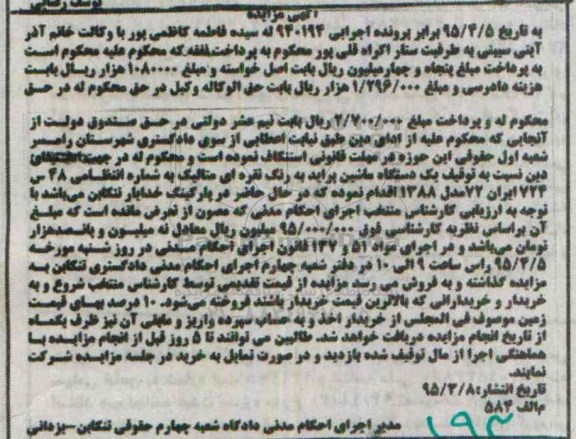 آگهی مزایده
به تاریخ ۹۵/۴/۵ برابر پرونده اجرایی ۹۴۰۱۹۴ له سیده فاطمه کاظمی پور با وکالت خانم آذر
آیتی سیینی به طرفیت ستار اکراه قلی پور محکوم به پرداخت محکوم علیه محکوم است
به پرداخت مبلغ پنجاه و چهارمیلیون ریال بابت اصل خواسته و مبلغ ۱۰۸۰۰۰۰ هزار ریال بابت
هزینه دادرسی و مبلغ ۱/۲۹۶/۰۰۰ هزار ریال بابت حق الوکاله وکیل در حق محکوم له در حق
محکوم له و پرداخت مبلغ ۲/۷۰۰/۰۰۰ ریال بابت نیم عشر دولتی در حق صندوق دولت از
آنجایی که محکوم علیه از ادای دین طبق نیابت اعطایی از سوی دادگستری شهرستان رامسر
شعبه اول حقوقی این حوزه در مهلت قانونی استنکاف نموده است و محکوم له در جهت استیفای
دین نسبت به توقیف یک دستگاه ماشین پراید به رنگ نقره ای متالیک به شماره انتظامی ۴۸ س
۷۲۴ ایران ۷۲ مدل ۱۳۸۸ اقدام نموده که در حال حاضر در پارکینگ خدایار تنکابن می‌باشد با
توجه به ارزیابی کارشناس منتخب اجرای احکام مدنی که مصون از تعرض مانده است که مبلغ
آن براساس نظریه کارشناسی فوق ۹۵/۰۰۰/۰۰۰ میلیون ریال معادل نه میلیون و پانصدهزار
تومان می‌باشد و در اجرای مواد ۵۱ و ۱۳۷ قانون اجرای احکام مدنی در روز شنبه مورخه
۹۵/۴/۵ راس ساعت ۹ الی ۱۰ در دفتر شعبه چهارم اجرای احکام مدنی دادگستری تنکابن به
مزایده گذاشته و به فروش می رسد مزایده از قیمت تقدیمی توسط کارشناس شروع و به
خریدار و خریدارانی که بالاترین قیمت خریدار باشند فروخته می‌شود. ۱۰ درصد بهای قیمت
زمین موصوف فی المجلس از خریدار اخذ و به حساب سپرده واریز و مابقی آن نیز ظرف یکماه
از تاریخ انجام مزایده دریافت خواهد شد. طالبین می توانند تا ۵ روز قبل از انجام مزایده با
هماهنگی اجرا از مال توقیف شده بازدید و در صورت تمایل به خرید در جلسه مزایده شرکت
نمایند.
تاریخ انتشار: ۹۵/۳/۸
م/الف ۵۸۴
مدیر اجرای احکام مدنی دادگاه شعبه چهارم حقوقی تنکابن-یزدانی
۱۹۳